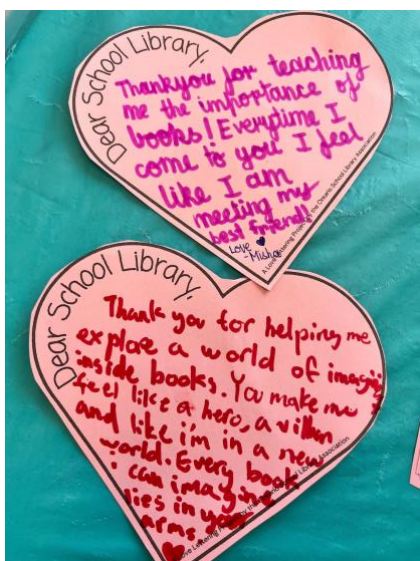 Dear School Library,
Thankyou for teaching
me the importance of
books! Everytime I
come to you I feel
like I am
meeting my
best friend!
Love
-Misha
A Love Lettering Project by the Ontario School Library Association
Dear School Library,
Thank you for helping me
explore a world of
inside books. You make me
feel like a hero, a villan
and like i'm in a new
world. Every book
i can imagine
lies in your
arms.
Love Lettering Project by the School Library Association